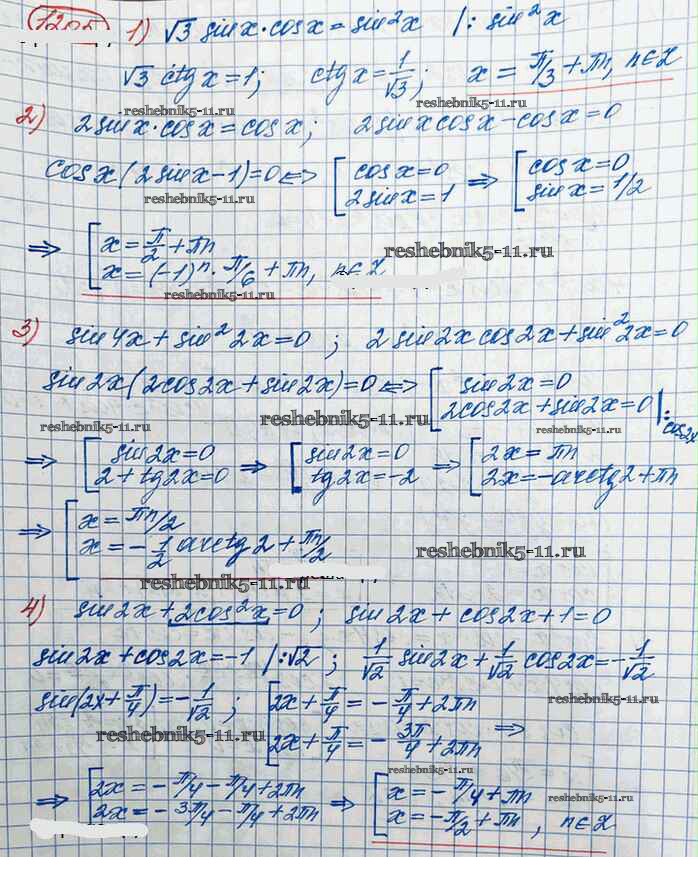 1205 1) √3 sinx·cosx = sin²x |: sin²x
√3 ctgx = 1; ctgx = 1/√3; x = π/3 + πn, n∈Z
reshebnik5-11.ru reshebnik5-11.ru
2) 2sinx·cosx = cosx; 2sinxcosx - cosx = 0
cosx(2sinx-1)=0 <=> [ cosx=0 => [ cosx=0
2sinx=1 sinx=1/2
reshebnik5-11.ru
=> [ x = π/2 + πn
x = (-1)ⁿ · π/6 + πn, n∈Z
reshebnik5-11.ru
reshebnik5-11.ru
3) sin4x + sin²2x = 0; 2sin2xcos2x + sin²2x = 0
sin2x(2cos2x + sin2x) = 0 <=> [ sin2x = 0
2cos2x + sin2x = 0 |: cos2x
reshebnik5-11.ru reshebnik5-11.ru reshebnik5-11.ru
=> [ sin2x = 0 => [ sin2x = 0 => [ 2x = πn
2 + tg2x = 0 tg2x = -2 2x = -arctg2 + πn
=> [ x = πn/2
x = -1/2 arctg2 + πn/2
reshebnik5-11.ru
reshebnik5-11.ru
4) sin2x + 2cos²x = 0; sin2x + cos2x + 1 = 0
sin2x + cos2x = -1 |:√2; 1/√2 sin2x + 1/√2 cos2x = -1/√2
sin(2x + π/4) = -1/√2; [ 2x + π/4 = -π/4 + 2πn
2x + π/4 = -3π/4 + 2πn =>
reshebnik5-11.ru
reshebnik5-11.ru
reshebnik5-11.ru
=> [ 2x = -π/4 - π/4 + 2πn => [ x = -π/4 + πn
2x = -3π/4 - π/4 + 2πn x = -π/2 + πn, n∈Z
reshebnik5-11.ru
reshebnik5-11.ru